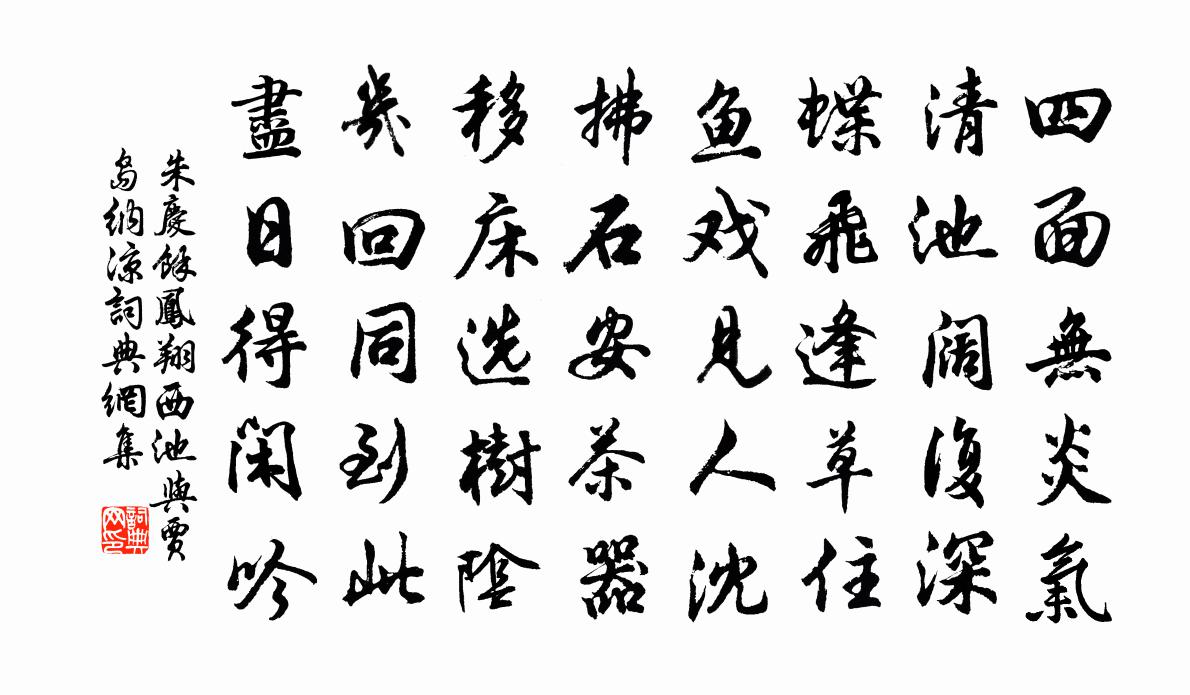 四面無炎氣
清池阔復深
蝶飛逢草住
鱼戏見人沈
拂石安茶器
移床选樹陰
幾回同到此
盡日得閑吟
朱慶餘鳳翔西池與賈
島納涼詞典網集
詞典
网印